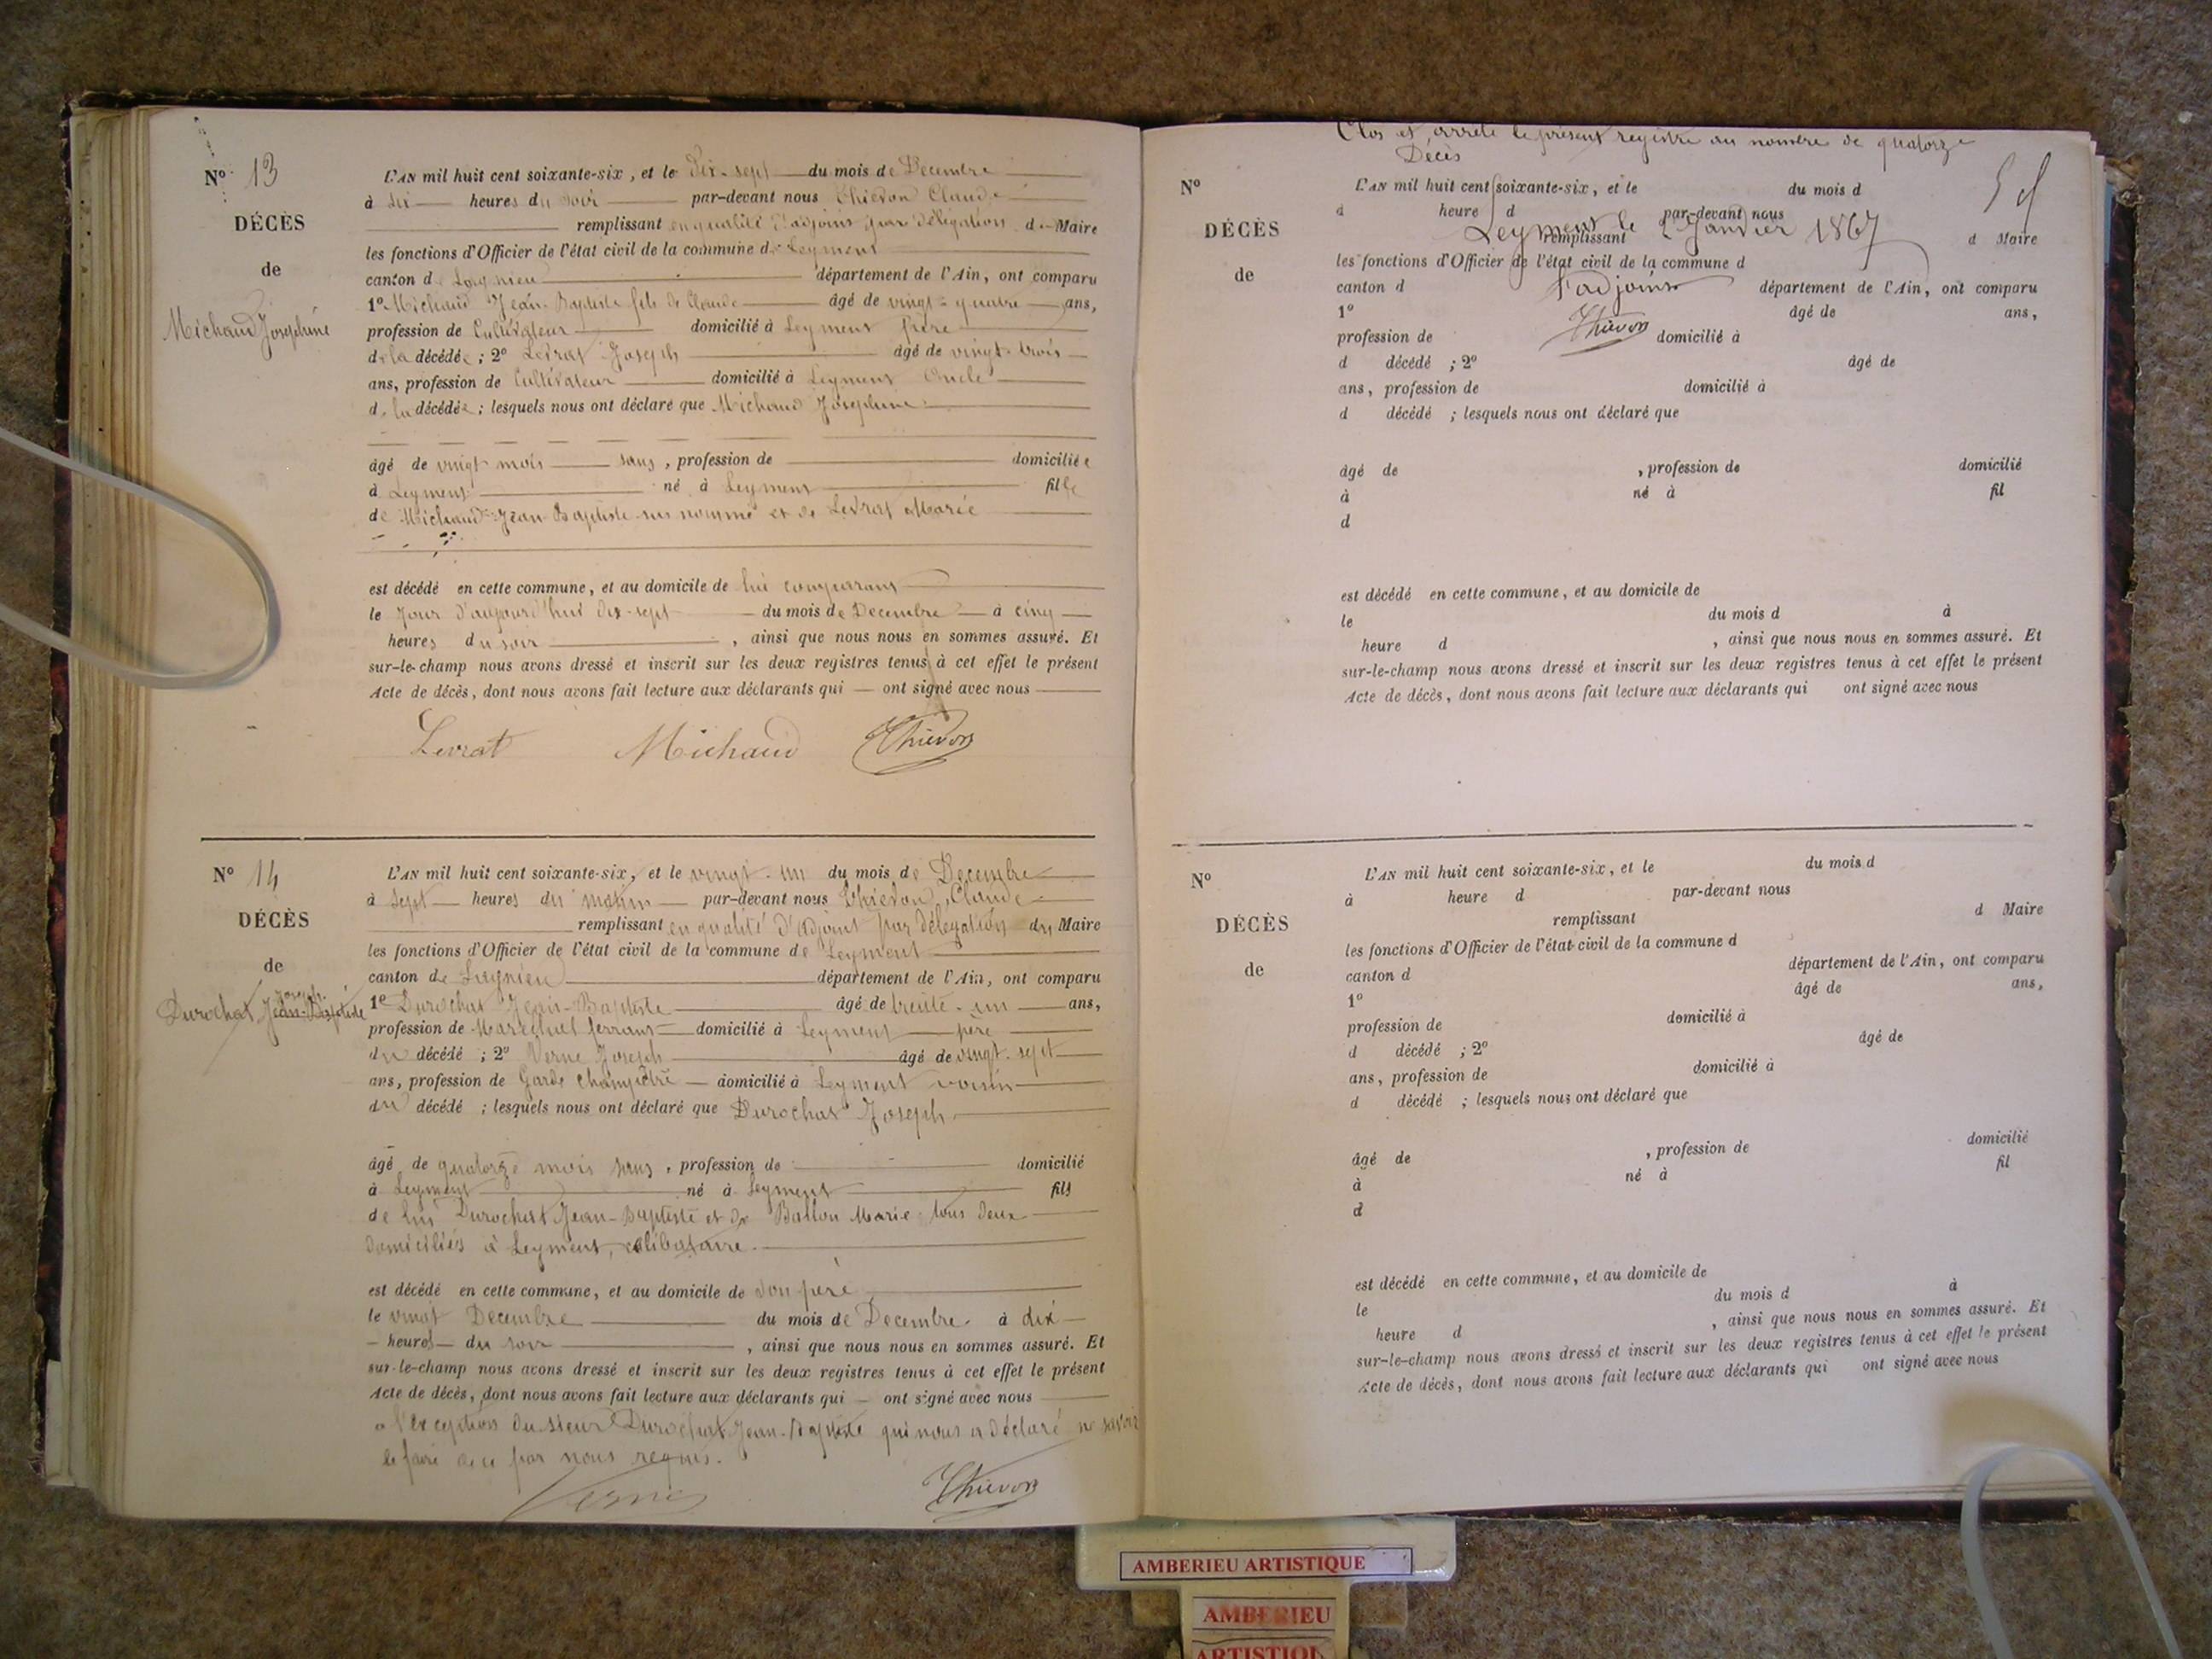 N° 13
DÉCÈS
de
Michaud Joséphine
L'AN mil huit cent soixante-six, et le Dix-sept du mois de Decembre
à six heures du soir par-devant nous Thievon Claude
remplissant en qualité d'adjoint par délégation du Maire
les fonctions d'Officier de l'état civil de la commune de Leyment
canton de Lagnieu département de l'Ain, ont comparu
1° Michaud Jean-Baptiste fils de Claude âgé de vingt-quatre ans,
profession de Cultivateur domicilié à Leyment père
de la décédée ; 2° Levrat Joseph âgé de vingt-trois
ans, profession de Cultivateur domicilié à Leyment Oncle
de la décédée ; lesquels nous ont déclaré que Michaud Josephine
âgé de vingt mois sans, profession de domiciliée
à Leyment né à Leyment fille
de Michaud Jean-Baptiste sus nommé et de Levrat Marie
est décédé en cette commune, et au domicile de lui comparant
le Jour d'aujourd'hui dix-sept du mois de Decembre à cinq
heures du soir , ainsi que nous nous en sommes assuré. Et
sur-le-champ nous avons dressé et inscrit sur les deux registres tenus à cet effet le présent
Acte de décès, dont nous avons fait lecture aux déclarants qui — ont signé avec nous
Levrat Michaud Thievon
N° 14
DÉCÈS
de
Joseph.
Durochat Jean-Baptiste
L'AN mil huit cent soixante-six, et le vingt-un du mois de Decembre
à sept heures du matin par-devant nous Thievon Claude
remplissant en qualité d'adjoint par délégation du Maire
les fonctions d'Officier de l'état civil de la commune de Leyment
canton de Lagnieu département de l'Ain, ont comparu
1° Durochat Jean-Baptiste âgé de trente-un ans,
profession de Maréchal ferrant domicilié à Leyment père
du décédé ; 2° Verne Joseph âgé de vingt-sept
ans, profession de Garde champêtre domicilié à Leyment voisin
du décédé ; lesquels nous ont déclaré que Durochat Joseph
âgé de quatorze mois sans, profession de domicilié
à Leyment né à Leyment fils
de lui Durochat Jean-Baptiste et de Ballon Marie tous deux
domiciliés à Leyment, célibataire.
est décédé en cette commune, et au domicile de son père
le vingt Decembre du mois de Decembre à dix
heures du soir , ainsi que nous nous en sommes assuré. Et
sur-le-champ nous avons dressé et inscrit sur les deux registres tenus à cet effet le présent
Acte de décès, dont nous avons fait lecture aux déclarants qui — ont signé avec nous
a l'exception du sieur Durochat Jean-Baptiste qui nous a déclaré ne savoir
le faire de ce par nous requis.
Verne Thievon
Clos et arreté le présent registre au nombre de quatorze
Décès
N°
DÉCÈS
de
L'AN mil huit cent soixante-six, et le du mois d
à heure d par-devant nous
Leyment le 2 Janvier 1867
remplissant d Maire
les fonctions d'Officier de l'état civil de la commune d
canton d département de l'Ain, ont comparu
l'adjoint
1° âgé de ans,
Thievon
profession de domicilié à
d décédé ; 2° âgé de
ans, profession de domicilié à
d décédé ; lesquels nous ont déclaré que
âgé de , profession de domicilié
à né à fil
d
est décédé en cette commune, et au domicile de
le du mois d à
heure d , ainsi que nous nous en sommes assuré. Et
sur-le-champ nous avons dressé et inscrit sur les deux registres tenus à cet effet le présent
Acte de décès, dont nous avons fait lecture aux déclarants qui ont signé avec nous
N°
DÉCÈS
de
L'AN mil huit cent soixante-six, et le du mois d
à heure d par-devant nous
remplissant d Maire
les fonctions d'Officier de l'état-civil de la commune d
canton d département de l'Ain, ont comparu
1° âgé de ans,
profession de domicilié à
d décédé ; 2° âgé de
ans, profession de domicilié à
d décédé ; lesquels nous ont déclaré que
âgé de , profession de domicilié
à né à fil
d
est décédé en cette commune, et au domicile de
le du mois d à
heure d , ainsi que nous nous en sommes assuré. Et
sur-le-champ nous avons dressé et inscrit sur les deux registres tenus à cet effet le présent
Acte de décès, dont nous avons fait lecture aux déclarants qui ont signé avec nous
AMBERIEU ARTISTIQUE
AMBERIEU